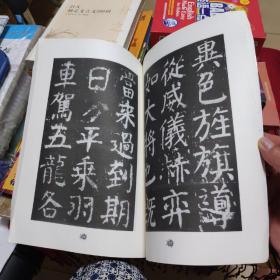 當来過到期
日方平乘羽
車駕五龍各
異色旌旗導
從威儀赫弈
如大將也既
English